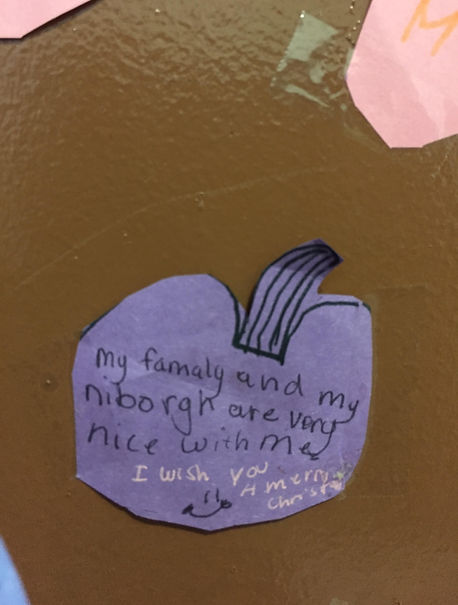 My famaly and my
niborgh are very
nice with me
I wish you
A merry
Christ
M